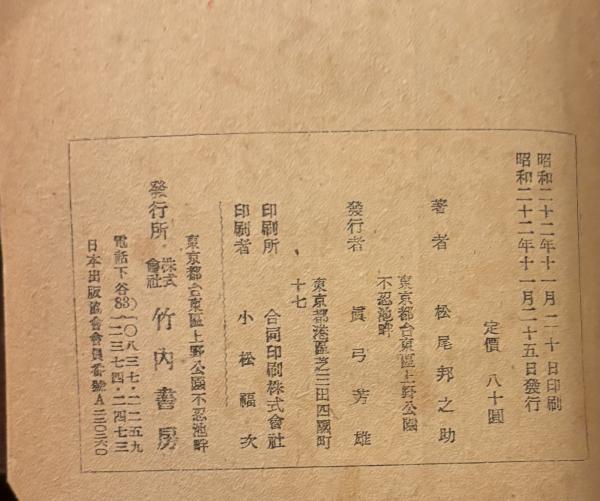 昭和二十二年十一月二十日印刷
昭和二十二年十一月二十五日發行
定價 八十圓
著者 松尾邦之助
東京都台東區上野公園
不忍池畔
發行者 眞弓芳雄
東京都港區芝三田四國町
十七
印刷所 合同印刷株式會社
印刷者 小松福次
東京都台東區上野公園不忍池畔
發行所 株式會社 竹內書房
電話下谷(83)〇八三七・二二五九
二三七四・二四七三
日本出版協會會員番號A二三〇二六〇